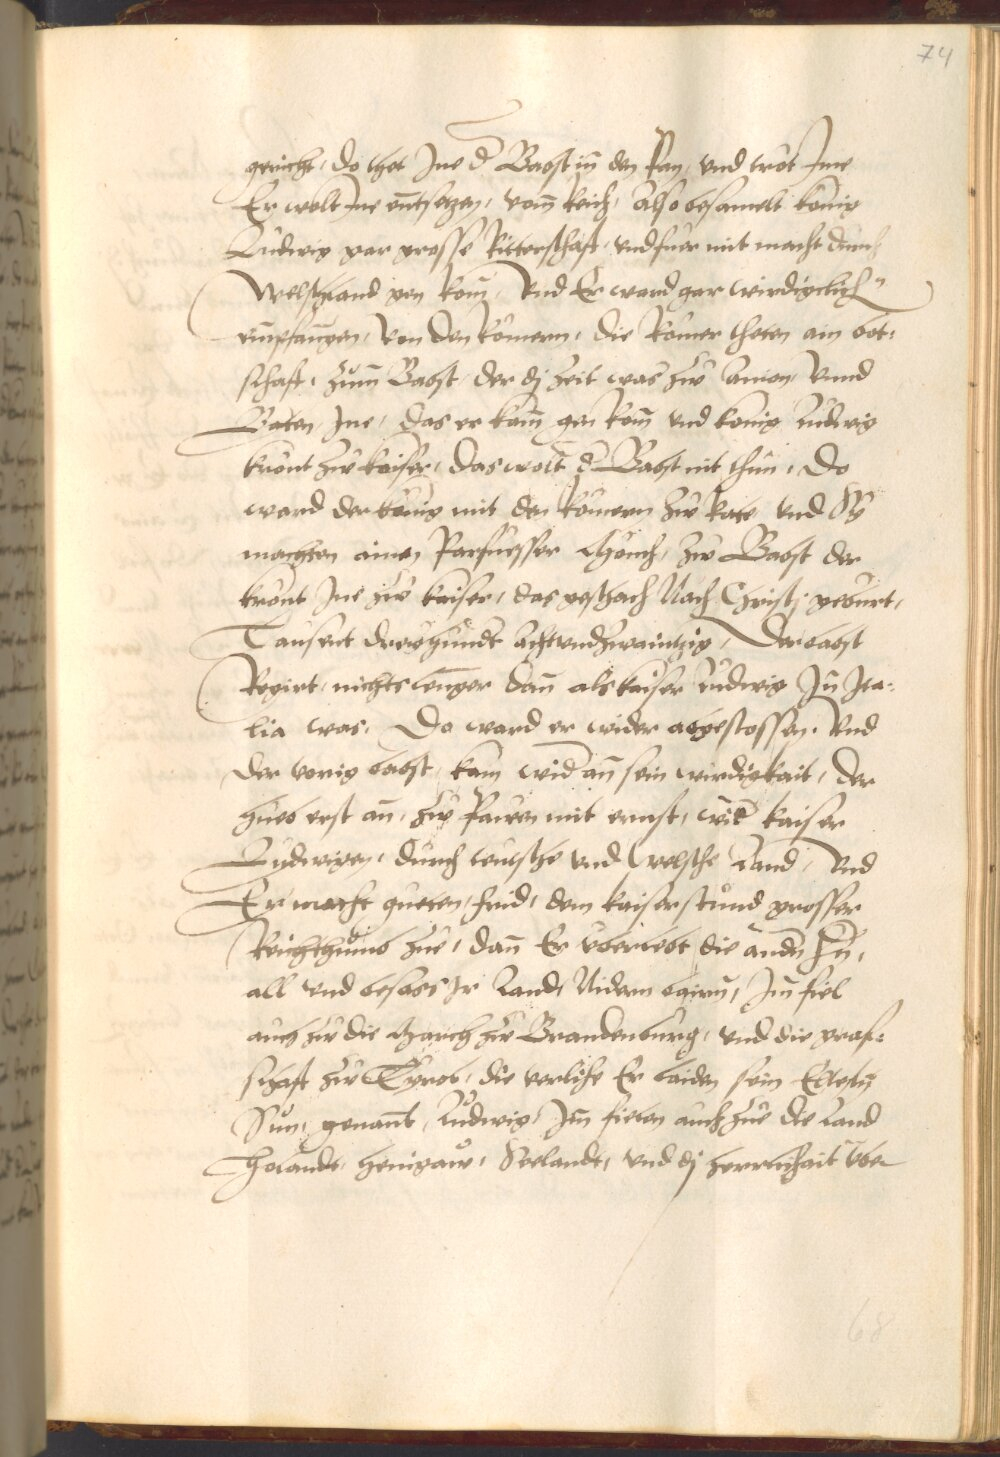 74
gericht, do thet Jne d Babst in den Pan, vnd trot Jme
Er wolt Jne entsetzen, vom Reich, Also besamelt konig
Ludwig gar grosse Ritterschafft, vnd fuer mit macht durch
Welschland gen Rom, Vnd Er ward gar wirdigclich
empfangen, von den Römern, die Römer theten ain bot-
schafft, zum Babst, der dj Zeit was zw Auion, vnnd
Baten Jne, das er kam gen Rom vnd konig Ludwig
krönt zw kaiser, das wolt d Babst nit thun, Do
ward der könig mit den Römern zw Rate vnd Sy
machten ainen Parfuesser Münch, zw Babst der
krönt Jne zw kaiser, das geschach Nach Christj geburt,
Tausent drewhundt achtundzwaintzig, Der babst
Regirt, nichts lenger dan als kaiser Ludwig Jn Jta-
lia was, Do ward er wider abgestossen, Vnd
der vorig babst, kam wid an sein wirdigkait, der
hueb erst an, zw Pannen mit ernst, wid kaiser
Ludwigen, durch teutsche vnd Welsche Land, Vnd
Er macht gueten frid, dem kaiser stuend grosser
Reichthumb zue, dan Er vberlebt die andn hn,
all vnd besass Jr Land, Nidern bairn, Jm fiel
auch zw die March zw Brandenburg, vnd die graf-
schafft zw Tyrol, die verlihe Er baiden sein Eltestn
Sun, genant, Ludwig, Jm fielen auch zue die Land
Holandt, Henigaw, Seelandt, vnd dj herrlichait vber
68